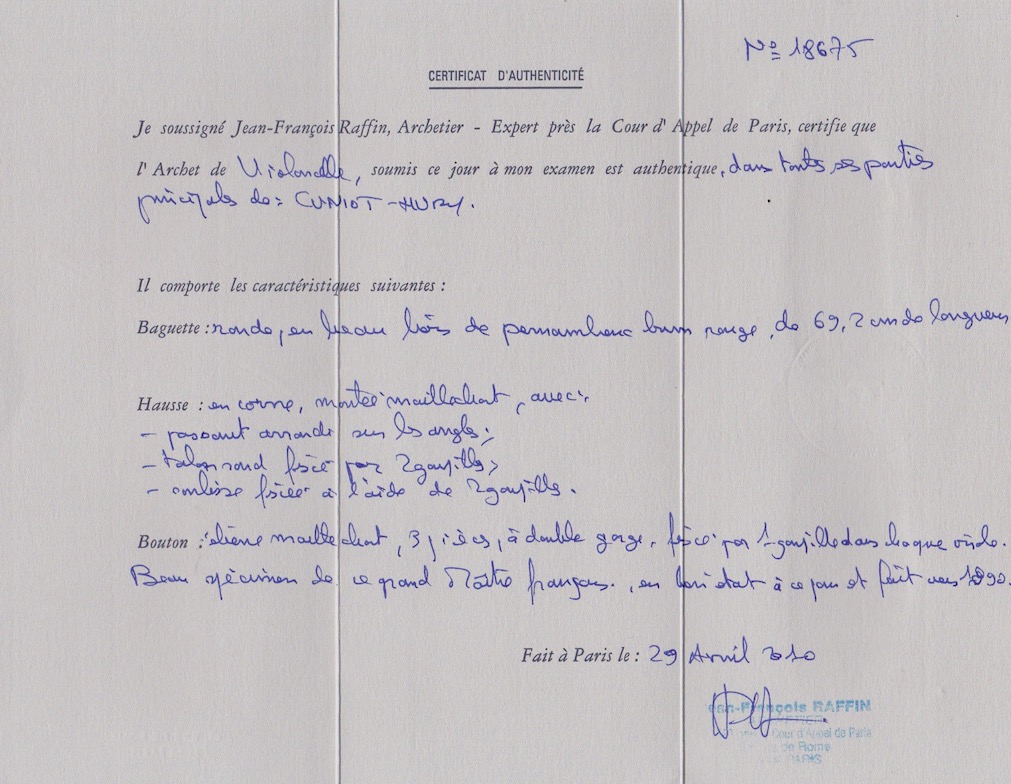 Nº 18675
CERTIFICAT D'AUTHENTICITÉ
Je soussigné Jean-François Raffin, Archetier - Expert près la Cour d'Appel de Paris, certifie que
l'Archet de Violoncelle, soumis ce jour à mon examen est authentique, dans toutes ses parties
principales de: CUNIOT-HURY.
Il comporte les caractéristiques suivantes :
Baguette : ronde, en beau bois de pernambouc brun rouge, de 69,2 cm de longueur
Hausse : en corne, montée maillechort, avec:
- passant arrondi sur les angles;
- talon rond fixé par 2 goupilles;
- coulisse fixée à l'aide de 2 goupilles.
Bouton : ébène maillechort, 3 pièces, à double gorge, fixé par 1 goupille dans chaque virole.
Beau spécimen de ce grand Maître français, en bon état à ce jour et fait vers 1890.
Fait à Paris le : 29 Avril 2010
Jean-François RAFFIN
Cour d'Appel de Paris
de Rome
PARIS